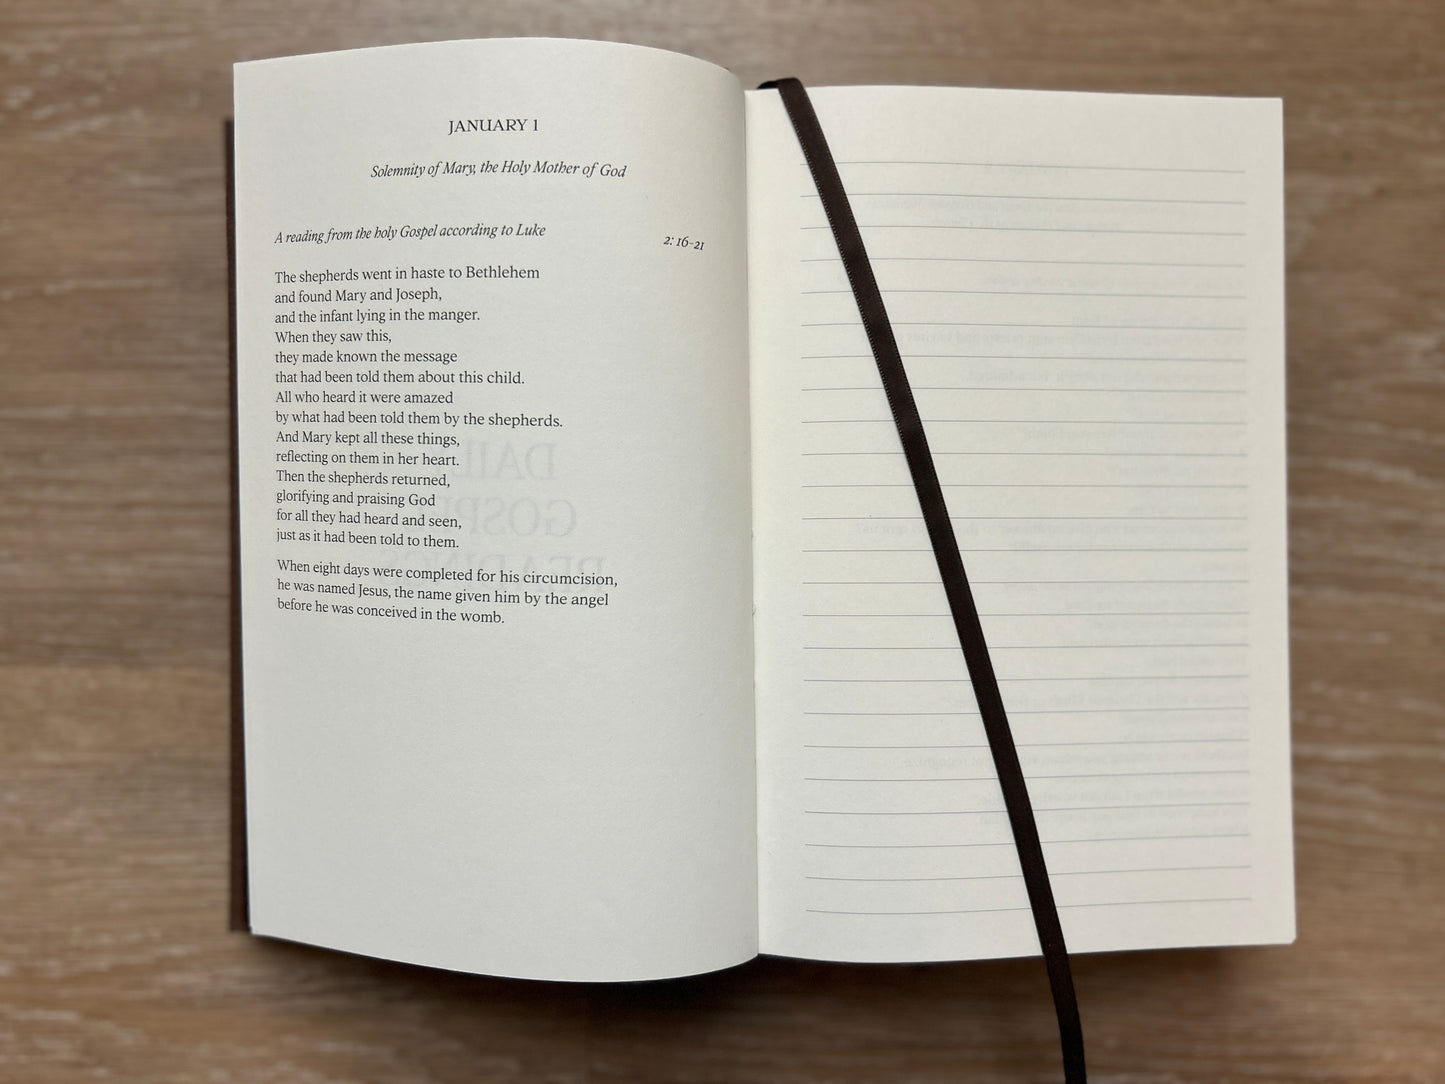 JANUARY 1
Solemnity of Mary, the Holy Mother of God
A reading from the holy Gospel according to Luke 2: 16-21
The shepherds went in haste to Bethlehem
and found Mary and Joseph,
and the infant lying in the manger.
When they saw this,
they made known the message
that had been told them about this child.
All who heard it were amazed
by what had been told them by the shepherds.
And Mary kept all these things,
reflecting on them in her heart.
Then the shepherds returned,
glorifying and praising God
for all they had heard and seen,
just as it had been told to them.
When eight days were completed for his circumcision,
he was named Jesus, the name given him by the angel
before he was conceived in the womb.